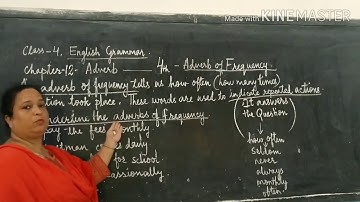 Made with KINEMASTER
Class-4, English Grammar.
Chapter-12- Adverb 4th - Adverb of Frequency.
adverb of frequency tells us how often (how many times)
tion took place. These words are used to indicate repeated actions
nderline the adverbs of frequency
ay the fees monthly
tman comes daily
for school
cassionally.
(It answers
the Question)
how often
Seldom
never
always
monthly
often